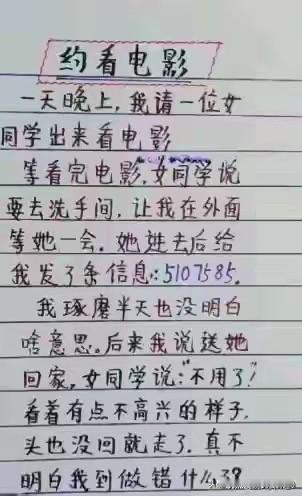 约看电影
一天晚上，我请一位女
同学出来看电影
等看完电影，女同学说
要去洗手间，让我在外面
等她一会。她进去后给
我发了条信息：5107585.
我琢磨半天也没明白
啥意思。后来我说送她
回家，女同学说："不用了！"
看着有点不高兴的样子.
头也没回就走了.真不
明白我到做错什么了?